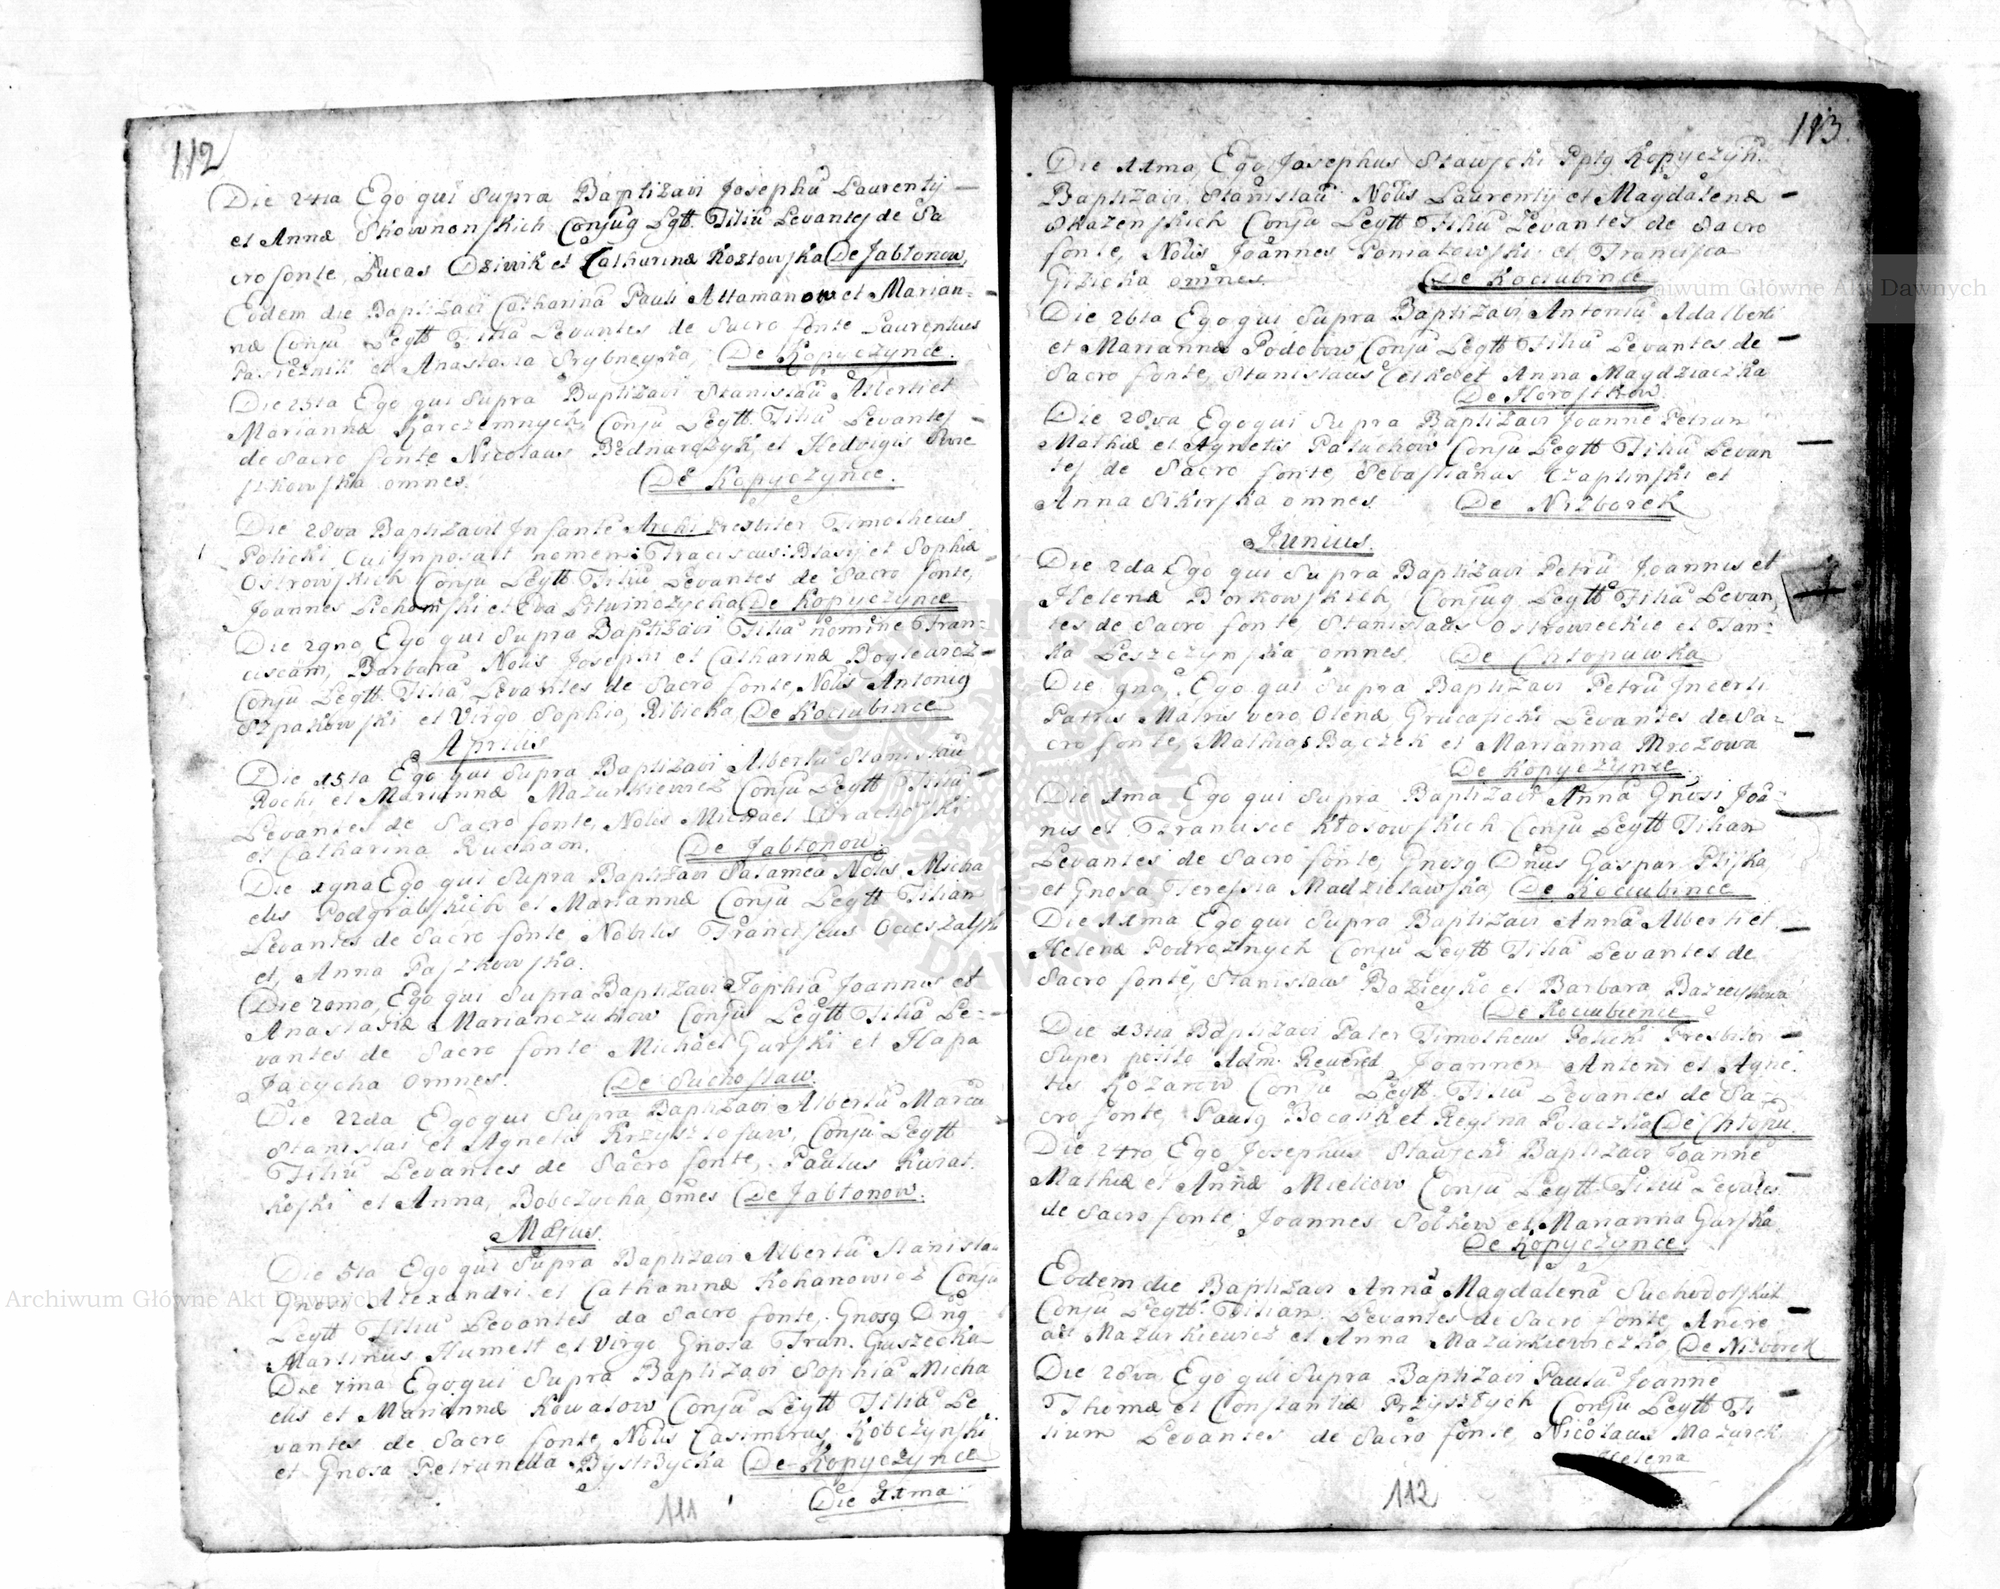 112
Die 24ta Ego qui Supra Baptizavi Josephũ Laurentij
et Annæ Skowronskich Conjug Lgtt. Filiũ Levantes de Sa
cro fonte, Lucas Dziwik et Catharina Kozłowska De Jabłonow,
Eodem die Baptizavi Catharinã Pauli Attamanow et Marian-
næ Conju Legtt Filiã Levantes de Sacro fonte Laurentius
Pasiecznik et Anastasia De Kopyczynce.
Die 25ta Ego qui Supra Baptizavi Stanislaũ Alberti et
Mariannæ Karczemnych, Conju Legtt. Filiũ Levantes
de Sacro fonte Nicolaus Bednarczyk, et Hedvigis
omnes. De Kopyczynce.
Die 28va Baptizavit Infantẽ Archi Presbiter Timotheus
Policki Cui Inposuit nomen: Franciscus: Blasij et Sophiæ
Ostrowskich Conju Legtt Filiũ Levantes de Sacro fonte,
Joannes et Eva De Kopyczynce
Die 29no Ego qui Supra Baptizavi Filiã nomine Fran-
ciscam, Barbarã Nobis Josephi et Catharinæ
Conju Legtt Filiã Levantes de Sacro fonte, Nobis Antonig
Szpakowski et Virgo Sophia, Ribicka De Kociubince
Aprilis
Die 15ta Ego qui Supra Baptizavi Albertũ Stanislaũ
Rochi et Mariannæ Mazurkiewicz Conju Legtt Filiũ
Levantes de Sacro fonte, Nobis Michael
et Catharina De Jabłonow.
Die 19na Ego qui Supra Baptizavi Salameã Nobis, Micha
elis Podgrabskich et Mariannæ Conju Legtt Filian
Levantes de Sacro fonte Nobilis Franciscus
et, Anna Paszkowska.
Die 20ma, Ego qui Supra Baptizavi Sophiã Joannis et
Anastasiæ Marianczukow Conju Legtt Filiã Le-
vantes de Sacro fonte Michael Gurski et Hapa
Jacycha omnes. De Suchostaw.
Die 22da Ego qui Supra Baptizavi Albertũ Marcũ
Stanislai et Agnetis Krzysztofuw, Conju Legtt
Filiũ Levantes de Sacro fonte, Paulus
et Anna, Bobczucha, omẽs De Jabłonow.
Majus.
Die 5ta Ego qui Supra Baptizavi Albertũ Stanislau
Gnosi Alexandri et Catharinæ Kohanowicz Conju
Legtt Filiũ Levantes da Sacro fonte, Gnosg Dng
Martinus Humelt et Virgo Gnosa Fran. Guszecka
Die 7ma Ego qui Supra Baptizavi Sophiã Micha
elis et Mariannæ Kowalow Conju Legtt Filiã Le
vantes de Sacro fonte, Nobis Casimirus Kobczynski
et Gnosa Petrunella Bystrzycka De Kopyczynce
Die 11ma
111
113
Die 11ma, Ego Josephus Stawscki Pptg Kopyczyn:
Baptizavi, Stanislaũ Nobis Laurentij et Magdalenæ
Skazenskich Conju Legtt Filiũ Levantes de Sacro
fonte, Nobis Joannes Poniatowski et Francisca
Gizicka omnes. De Kociubince
Die 26ta Ego qui Supra Baptizavi Antoniũ Adalberti
et Mariannæ Podobow Conju Legtt Filiũ Levantes de
Sacro fonte, Stanislaus et Anna Magdziaczka
De Horostkow.
Die 28va Ego qui Supra Baptizavi Joannẽ Petrum
Mathiæ et Agnetis Paluchow Conju Legtt Filiũ Levan
tes de Sacro fonte, Sebastianus Czaplinski et
Anna Sikirska omnes De Nizborek
Junius.
Die 2da Ego qui Supra Baptizavi Petrũ Joannis et
Helenæ Borkowskich, Conjug Legtt Filiũ Levan,
tes de Sacro fonte Stanislaus et Fran-
ka Leszczynska omnes. De Chłopuwka
Die 9na, Ego qui Supra Baptizavi Petrũ Incerti
Patris Matris vero Olenæ Levantes de Sa-
cro fonte, Mathias Bączek et Marianna Mrozowa
De Kopyczynce.
Die 1ma Ego qui Supra Baptizavi Annã Gnosi Joã-
nis et Francisce Kłosowskich Conju Legtt Filian
Levantes de Sacro fonte, Gnosg Dnus Gaspar Pliska,
et Gnosa Theressia Madzielawska, De Kociubince
Die 11ma Ego qui Supra Baptizavi Annã Alberti et
Helenæ Podroznych Conju Legtt Filiã Levantes de
Sacro fonte, Stanislaus et Barbara
De Kociubience
Die 13tia Baptizavi Pater Timotheus Policki Presbiter
Super posito Adm: Revered Joannen Antoni et Agne-
tis Kozarow Conju Legtt. Filiũ Levantes de Sa-
cro fonte, Paulg Bocalik et Regina Polaczka De Chłopu.
Die 24ro Ego Josephus Stawscki Baptizavi Joannẽ
Mathiæ et Annæ Mielcow Conju Legtt. Filiũ Levates
de Sacro fonte, Joannes Sobkow et Marianna Gurska
De Kopyczynce
Eodem die Baptizavi Annã Magdalenã Suchodolskich
Conju Legtt. Filian Levantes de Sacro fonte, Andre
as Mazurkiewicz et Anna Mazurkiewiczka De Nizborek
Die 28va Ego qui Supra Baptizavi Paulũ Joannẽ
Thomæ et Constantiæ Przystych Conju Legtt Fi
lium Levantes de Sacro fonte, Nicolaus Mazurek
Helena
112
Archiwum Główne Akt Dawnych
Archiwum Główne Akt Dawnych